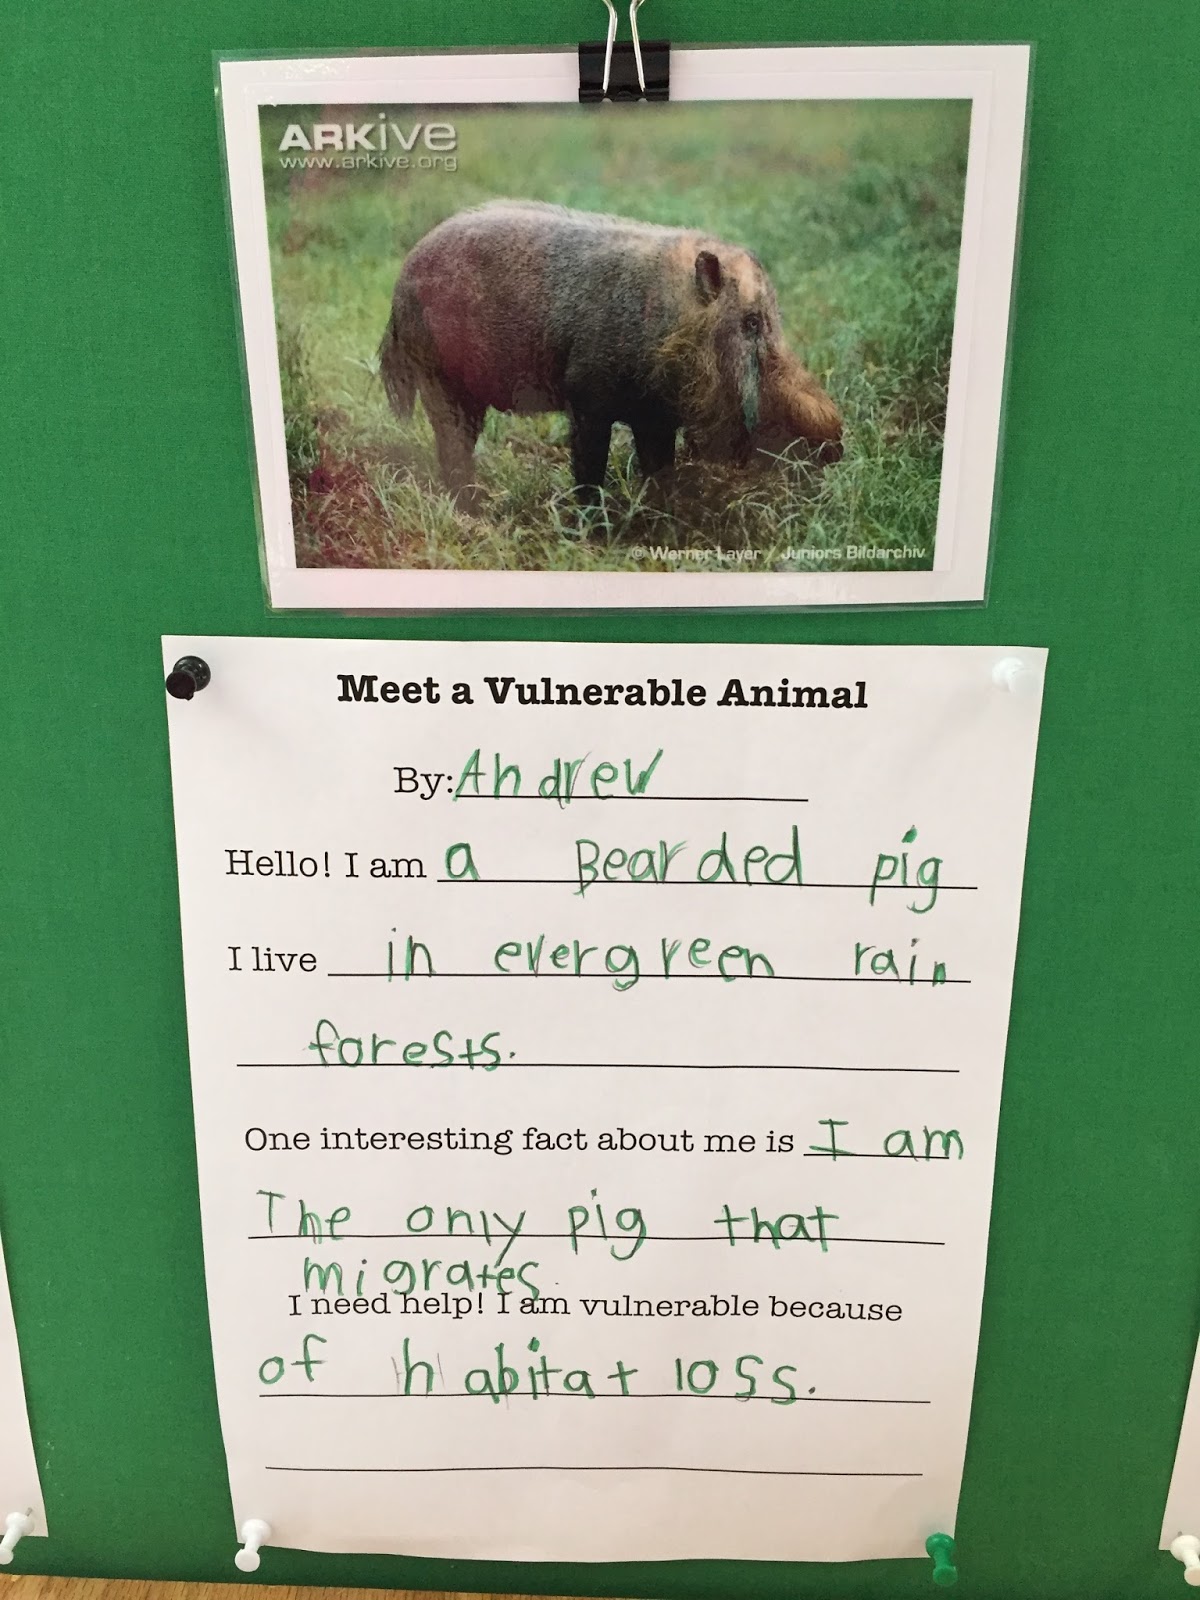 ARKive
www.arkive.org
© Werner Layer / Juniors Bildarchiv
Meet a Vulnerable Animal
By: Andrew
Hello! I am a Bearded pig
I live in evergreen rain
forests.
One interesting fact about me is I am
The only pig that
migrates.
I need help! I am vulnerable because
of habitat loss.